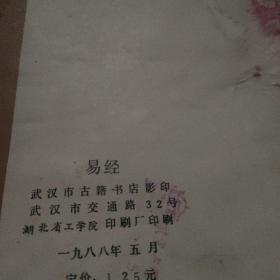 易经
武汉市古籍书店影印
武汉市交通路32号
湖北省工学院印刷厂印刷
一九八八年五月
定价：1.25元